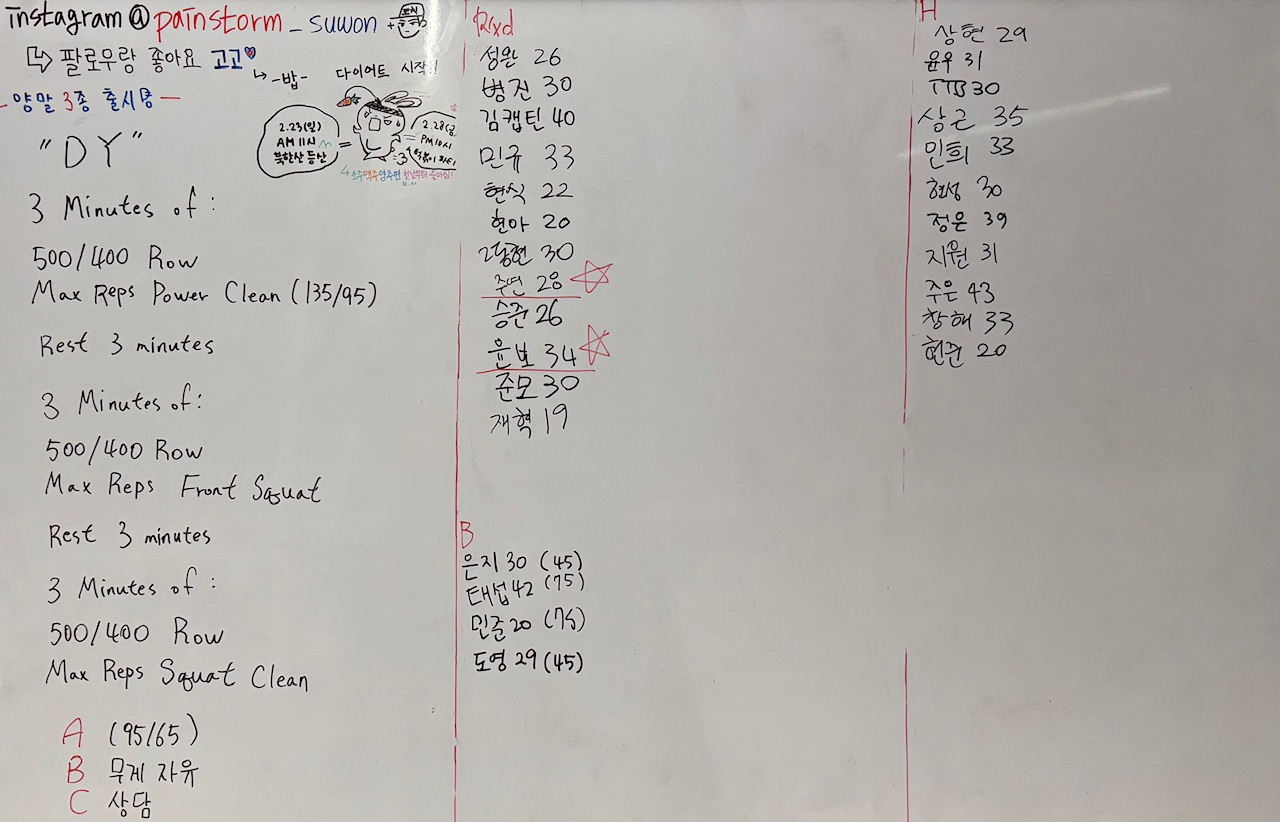 instagram@painstorm_suwon +
팔로우랑 좋아요 고고
-양말 3종 출시중-
-밥-
다이어트 시작!!
2.23(일)
AM 11시
북한산 등산
=
=
2.28(금)
PM 10시
"DY"
3 Minutes of:
500/400 Row
Max Reps Power Clean (135/95)
Rest 3 minutes
3 Minutes of:
500/400 Row
Max Reps Front Squat
Rest 3 minutes
3 Minutes of:
500/400 Row
Max Reps Squat Clean
A (95/65)
B 무게 자유
C 상담
Rxd
성완 26
병진 30
김캡틴 40
민규 33
현식 22
현아 20
30
주연 28
승준 26
윤보 34
준모 30
재혁 19
B
은지 30 (45)
태섭 42 (75)
민준 20 (75)
도영 29 (45)
H
상현 29
윤우 31
30
상근 35
민희 33
현성 30
정은 39
지원 31
주은 43
창해 33
현준 20